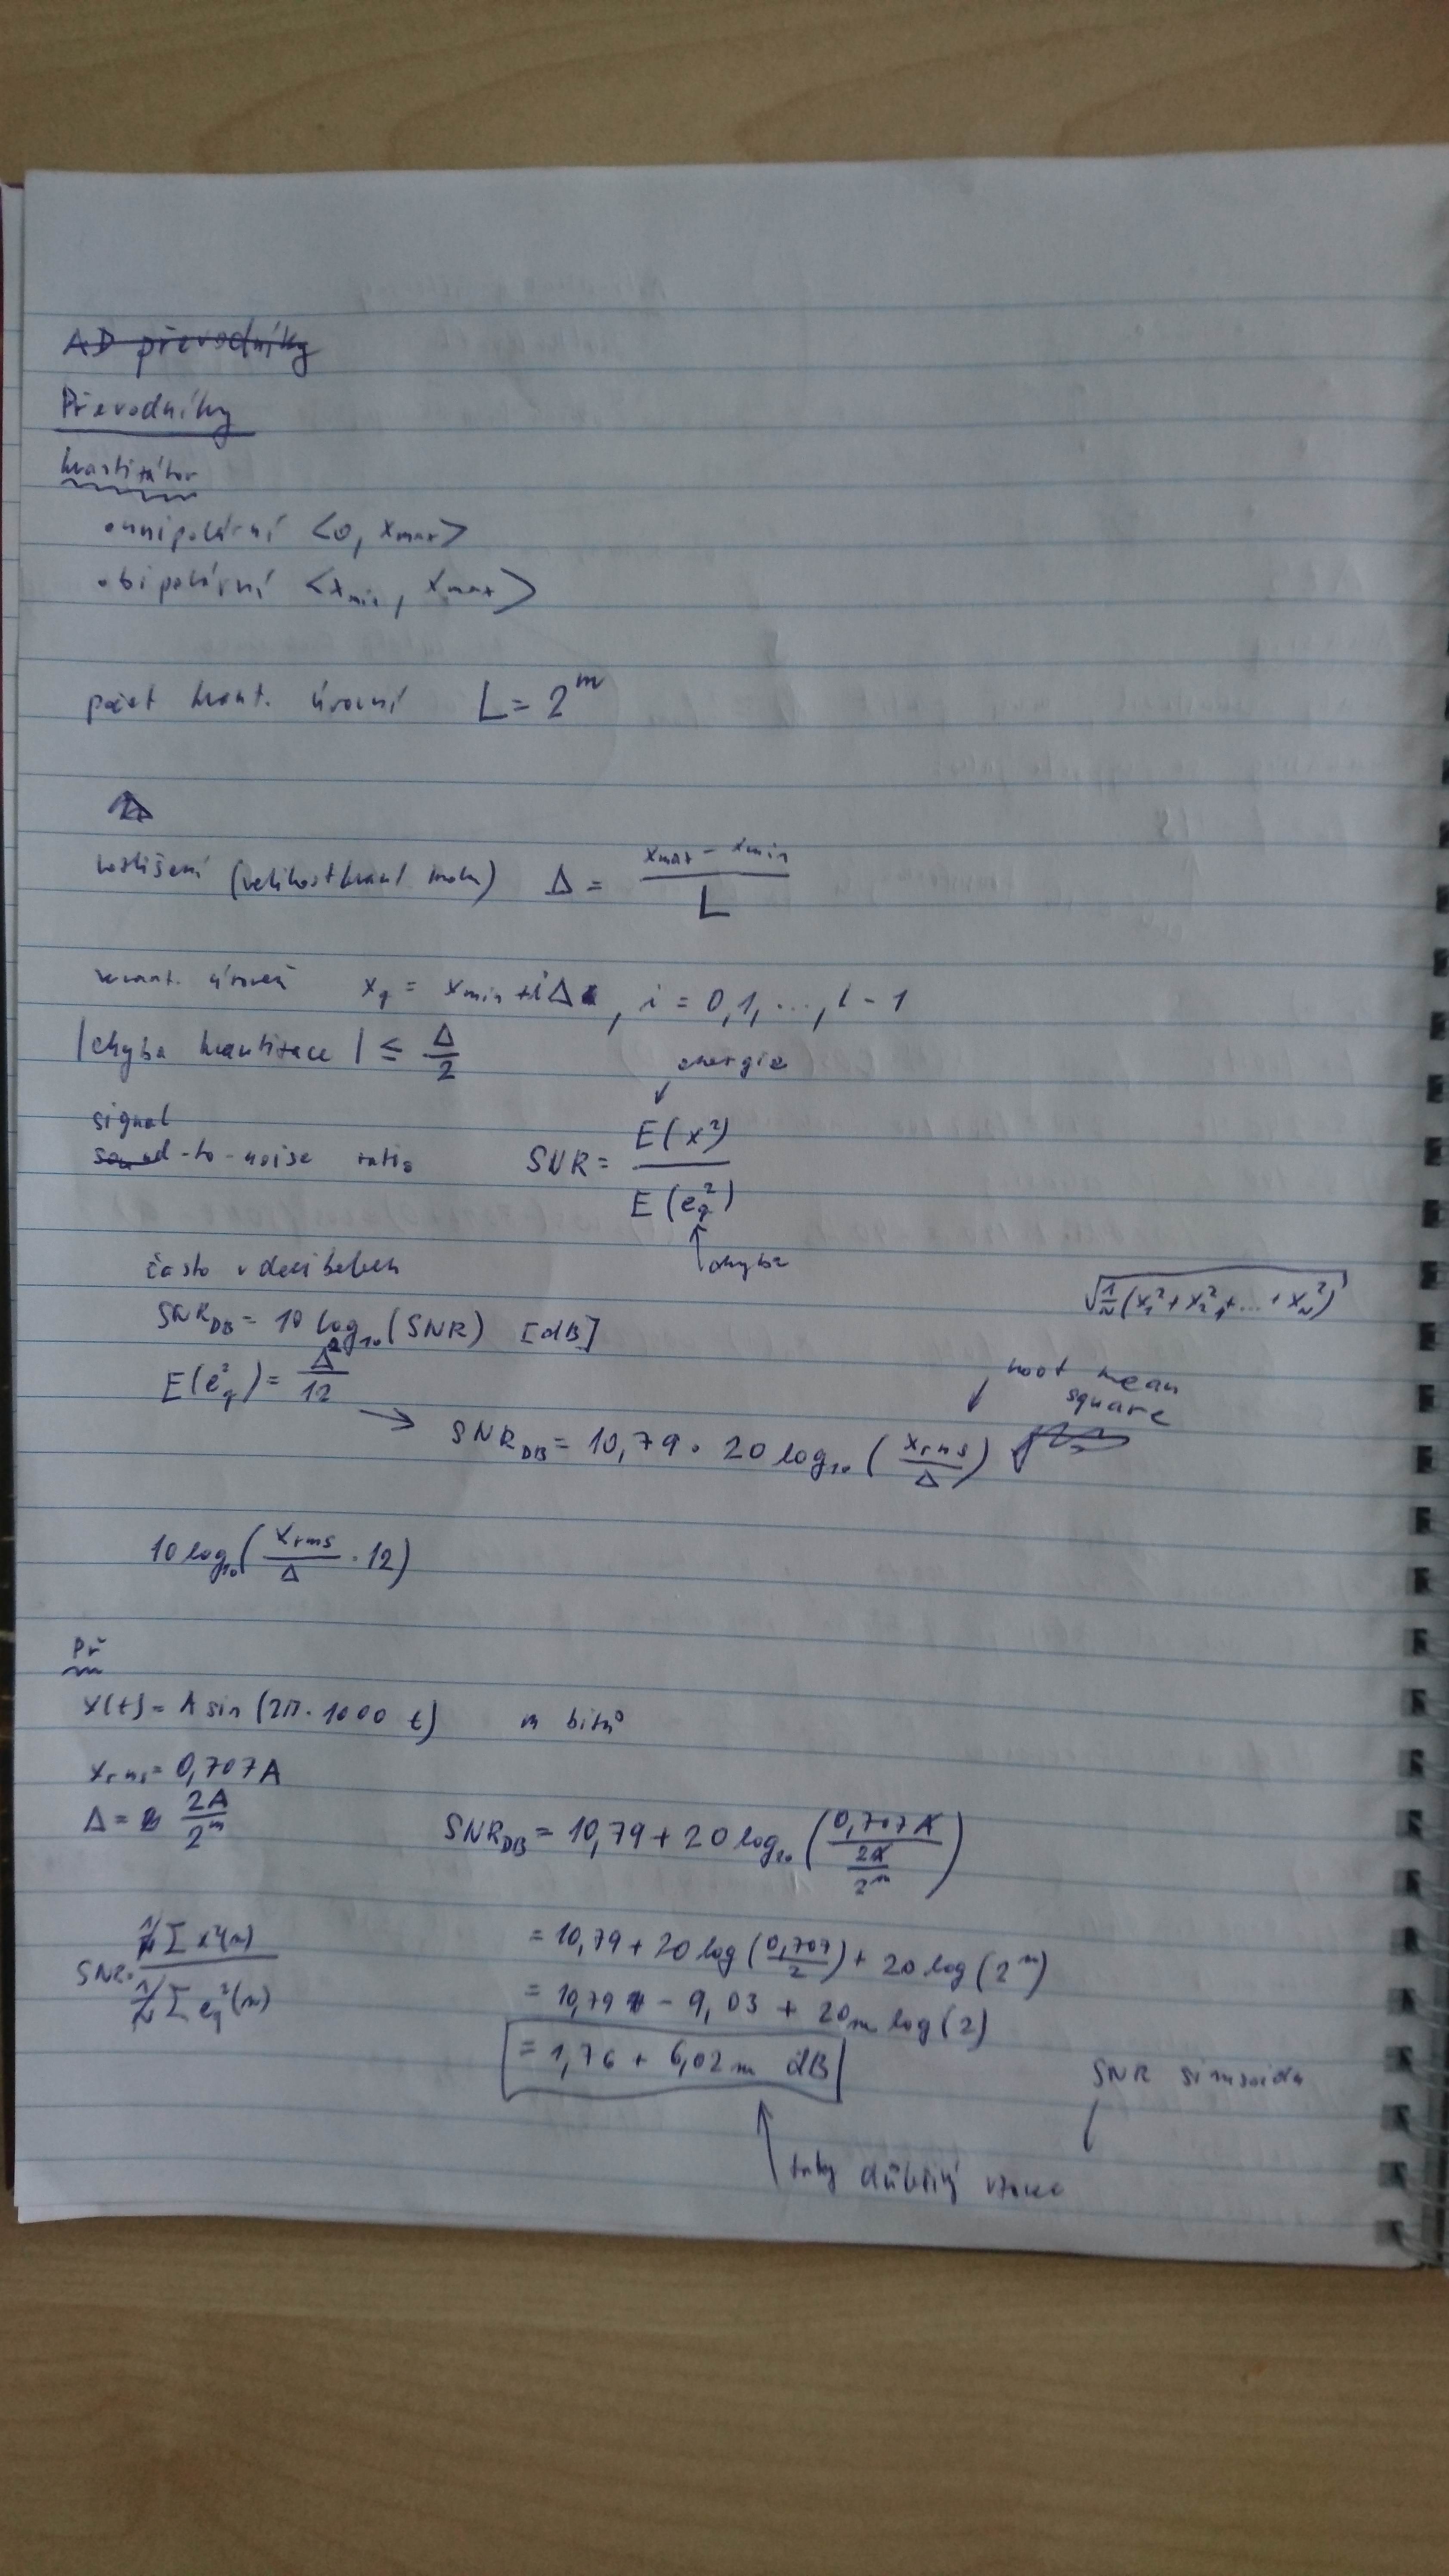 AD převodníky
Převodníky
kvantizátor
• unipolární <0, xmax>
• bipolární <xmin, xmax>
počet kvant. úrovní L = 2^m
rozlišení (velikost kvant. kroku) Δ = (xmax - xmin) / L
kvant. úroveň x_q = xmin + iΔ, i = 0,1, ..., L - 1
|chyba kvantizace| ≤ Δ/2
energie
signal
sound-to-noise ratio SNR = E(x²) / E(e_q²)
chyba
často v decibelech
√(1/N (x₁² + x₂² + ... + x_N²))
SNR_DB = 10 log₁₀(SNR) [dB]
E(e_q²) = Δ²/12
root mean
square
→ SNR_DB = 10,79 . 20 log₁₀ (x_rms / Δ)
10 log₁₀ (x_rms / Δ · 12)
Př
x(t) = A sin (2π · 1000 t) m bitů
x_rms = 0,707A
Δ = 2A / 2^m
SNR_DB = 10,79 + 20 log₁₀ (0,707A / (2A / 2^m))
= 10,79 + 20 log (0,707 / 2) + 20 log (2^m)
SNR = 1/N Σ x²(n) / 1/N Σ e_q²(n)
= 10,79 - 9,03 + 20m log (2)
= 1,76 + 6,02 m dB
SNR sinusoidu
důležitý vzorec